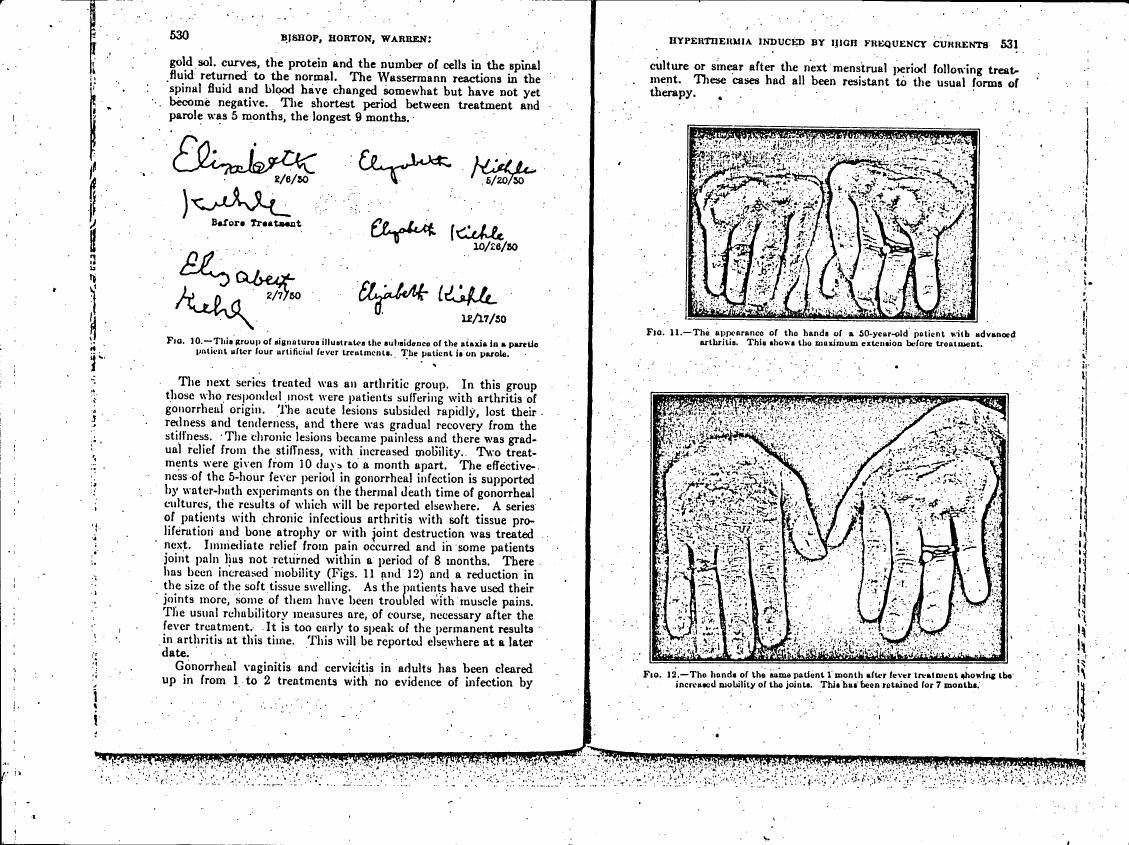 530
BISHOP, HORTON, WARREN:
gold sol. curves, the protein and the number of cells in the spinal
fluid returned to the normal. The Wassermann reactions in the
spinal fluid and blood have changed somewhat but have not yet
become negative. The shortest period between treatment and
parole was 5 months, the longest 9 months.
Elizabeth
2/6/30
Kiehle
Before Treatment
Elizabeth Kiehle
5/20/30
Elizabeth Kiehle
10/26/30
Elizabeth
2/7/30
Kiehl
Elizabeth Kiehle
12/17/30
FIG. 10.—This group of signatures illustrates the subsidence of the ataxia in a paretic
patient after four artificial fever treatments. The patient is on parole.
The next series treated was an arthritic group. In this group
those who responded most were patients suffering with arthritis of
gonorrheal origin. The acute lesions subsided rapidly, lost their
redness and tenderness, and there was gradual recovery from the
stiffness. The chronic lesions became painless and there was grad-
ual relief from the stiffness, with increased mobility. Two treat-
ments were given from 10 days to a month apart. The effective-
ness of the 5-hour fever period in gonorrheal infection is supported
by water-bath experiments on the thermal death time of gonorrheal
cultures, the results of which will be reported elsewhere. A series
of patients with chronic infectious arthritis with soft tissue pro-
liferation and bone atrophy or with joint destruction was treated
next. Immediate relief from pain occurred and in some patients
joint pain has not returned within a period of 8 months. There
has been increased mobility (Figs. 11 and 12) and a reduction in
the size of the soft tissue swelling. As the patients have used their
joints more, some of them have been troubled with muscle pains.
The usual rehabilitory measures are, of course, necessary after the
fever treatment. It is too early to speak of the permanent results
in arthritis at this time. This will be reported elsewhere at a later
date.
Gonorrheal vaginitis and cervicitis in adults has been cleared
up in from 1 to 2 treatments with no evidence of infection by
HYPERTHERMIA INDUCED BY HIGH FREQUENCY CURRENTS 531
culture or smear after the next menstrual period following treat-
ment. These cases had all been resistant to the usual forms of
therapy.
FIG. 11.—The appearance of the hands of a 50-year-old patient with advanced
arthritis. This shows the maximum extension before treatment.
FIG. 12.—The hands of the same patient 1 month after fever treatment showing the
increased mobility of the joints. This has been retained for 7 months.